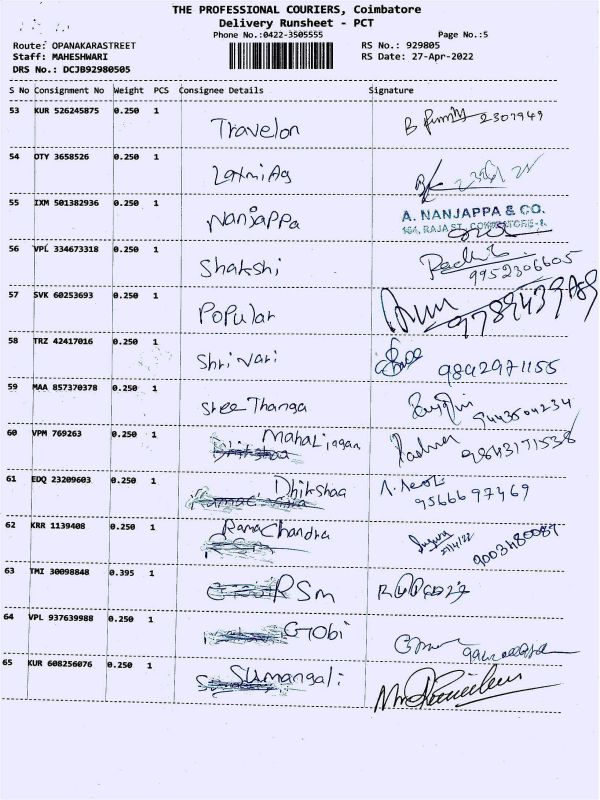 THE PROFESSIONAL COURIERS, Coimbatore
Delivery Runsheet - PCT
Phone No.:0422-3505555 Page No.:5
Route: OPANAKARASTREET RS No.: 929805
Staff: MAHESHWARI RS Date: 27-Apr-2022
DRS No.: DCJB92980505
S No Consignment No Weight PCS Consignee Details Signature
53 KUR 526245875 0.250 1 Travelon 2301949
54 OTY 3658526 0.250 1 LaxmiAg
55 IXM 501382936 0.250 1 Nanjappa A. NANJAPPA & CO.
164, RAJA ST, COIMBATORE-1.
56 VPL 334673318 0.250 1 Shakshi 9952306605
57 SVK 60253693 0.250 1 Popular
58 TRZ 42417016 0.250 1 Shri Vari 9842971155
59 MAA 857370378 0.250 1 Sree Thanga 9443504234
60 VPM 769263 0.250 1 Mahalinggam 9843171538
61 EDQ 23209603 0.250 1 Dhikshaa 9566697469
62 KRR 1139408 0.250 1 RamaChandra 9003480089
63 TMI 30098848 0.395 1 RSm
64 VPL 937639988 0.250 1 Gobi
65 KUR 608256076 0.250 1 Sumangali